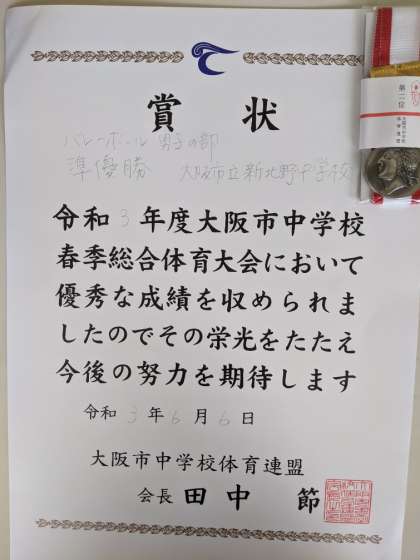 賞状
バレーボール 男子の部
準優勝 大阪市立新北野中学校
令和3年度大阪市中学校
春季総合体育大会において
優秀な成績を収められま
したのでその栄光をたたえ
今後の努力を期待します
令和3年6月6日
大阪市中学校体育連盟
会長 田中 節
第二位